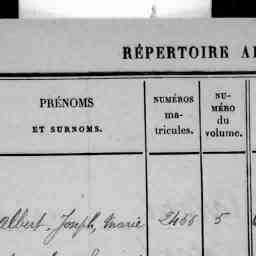 RÉPERTOIRE
PRÉNOMS
ET SURNOMS.
NUMÉROS
ma-
tricules.
NU-
MÉRO
du
volume.
albert, Joseph, Marie 2466 5